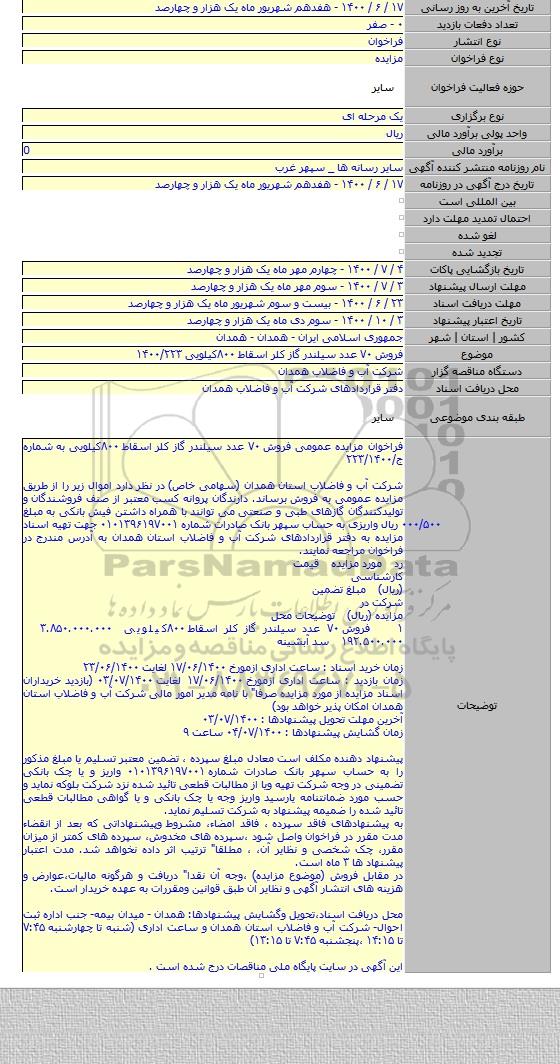 تاریخ آخرین به روز رسانی ۱۷ / ۶ / ۱۴۰۰ - هفدهم شهریور ماه یک هزار و چهارصد
تعداد دفعات بازدید ۰ - صفر
نوع انتشار فراخوان
نوع فراخوان مزایده
حوزه فعالیت فراخوان سایر
نوع برگزاری یک مرحله ای
واحد پولی برآورد مالی ریال
برآورد مالی 0
نام روزنامه منتشر کننده آگهی سایر رسانه ها _ سپهر غرب
تاریخ درج آگهی در روزنامه ۱۷ / ۶ / ۱۴۰۰ - هفدهم شهریور ماه یک هزار و چهارصد
بین المللی است
احتمال تمدید مهلت دارد
لغو شده
تجدید شده
تاریخ بازگشایی پاکات ۴ / ۷ / ۱۴۰۰ - چهارم مهر ماه یک هزار و چهارصد
مهلت ارسال پیشنهاد ۳ / ۷ / ۱۴۰۰ - سوم مهر ماه یک هزار و چهارصد
مهلت دریافت اسناد ۲۳ / ۶ / ۱۴۰۰ - بیست و سوم شهریور ماه یک هزار و چهارصد
تاریخ اعتبار پیشنهاد ۳ / ۱۰ / ۱۴۰۰ - سوم دی ماه یک هزار و چهارصد
کشور | استان | شهر جمهوری اسلامی ایران - همدان - همدان
موضوع فروش ۷۰ عدد سیلندر گاز کلر اسقاط ۸۰۰کیلویی ۱۴۰۰/۲۲۳
دستگاه مناقصه گزار شرکت آب و فاضلاب همدان
محل دریافت اسناد دفتر قراردادهای شرکت آب و فاضلاب همدان
طبقه بندی موضوعی سایر
توضیحات
فراخوان مزایده عمومی فروش ۷۰ عدد سیلندر گاز کلر اسقاط ۸۰۰کیلویی به شماره
ج/۲۲۳/۱۴۰۰
شرکت آب و فاضلاب استان همدان (سهامی خاص) در نظر دارد اموال زیر را از طریق
مزایده عمومی به فروش برساند. دارندگان پروانه کسب معتبر از صنف فروشندگان و
تولیدکنندگان گازهای طبی و صنعتی می توانند با همراه داشتن فیش بانکی به مبلغ
۰۰۰/۵۰۰ ریال واریزی به حساب سپهر بانک صادرات شماره ۰۱۰۱۳۹۶۱۹۷۰۰۱ جهت تهیه اسناد
مزایده به دفتر قراردادهای شرکت آب و فاضلاب استان همدان به آدرس مندرج در
فراخوان مراجعه نمایند.
رد مورد مزایده قیمت
کارشناسی
(ریال) مبلغ تضمین
شرکت در
مزایده (ریال) توضیحات محل
۱ فروش ۷۰ عدد سیلندر گاز کلر اسقاط ۸۰۰کیلویی ۳.۸۵۰.۰۰۰.۰۰۰
۱۹۲.۵۰۰.۰۰۰ سد آبشینه
زمان خرید اسناد : ساعت اداری ازمورخ ۱۷/۰۶/۱۴۰۰ لغایت ۲۳/۰۶/۱۴۰۰
زمان بازدید : ساعت اداری ازمورخ ۱۷/۰۶/۱۴۰۰ لغایت ۰۳/۰۷/۱۴۰۰ (بازدید خریداران
اسناد مزایده از مورد مزایده صرفا" با نامه مدیر امور مالی شرکت آب و فاضلاب استان
همدان امکان پذیر خواهد بود)
آخرین مهلت تحویل پیشنهادها : ۰۳/۰۷/۱۴۰۰
زمان گشایش پیشنهادها : ۰۴/۰۷/۱۴۰۰ ساعت ۹
پیشنهاد دهنده مکلف است معادل مبلغ سپرده ، تضمین معتبر تسلیم یا مبلغ مذکور
را به حساب سپهر بانک صادرات شماره ۰۱۰۱۳۹۶۱۹۷۰۰۱ واریز و یا چک بانکی
تضمینی در وجه شرکت تهیه ویا از مطالبات قطعی تائید شده نزد شرکت بلوکه نماید و
حسب مورد ضمانتنامه یارسید واریز وجه یا چک بانکی و یا گواهی مطالبات قطعی
تائید شده را ضمیمه پیشنهاد به شرکت تسلیم نماید.
به پیشنهادهای فاقد سپرده ، فاقد امضاء، مشروط وپیشنهاداتی که بعد از انقضاء
مدت مقرر در فراخوان واصل شود ،سپرده های مخدوش، سپرده های کمتر از میزان
مقرر، چک شخصی و نظایر آن، ، مطلقا" ترتیب اثر داده نخواهد شد. مدت اعتبار
پیشنهاد ها ۳ ماه است.
در مقابل فروش (موضوع مزایده) ،وجه آن نقدا" دریافت و هرگونه مالیات،عوارض و
هزینه های انتشار آگهی و نظایر آن طبق قوانین ومقررات به عهده خریدار است.
محل دریافت اسناد،تحویل وگشایش پیشنهادها: همدان - میدان بیمه- جنب اداره ثبت
احوال- شرکت آب و فاضلاب استان همدان و ساعت اداری (شنبه تا چهارشنبه ۷:۴۵
تا ۱۴:۱۵ ،پنجشنبه ۷:۴۵ تا ۱۳:۱۵)
این آگهی در سایت پایگاه ملی مناقصات درج شده است .
ParsNamadData
پایگاه اطلاع رسانی مناقصه و مزایده